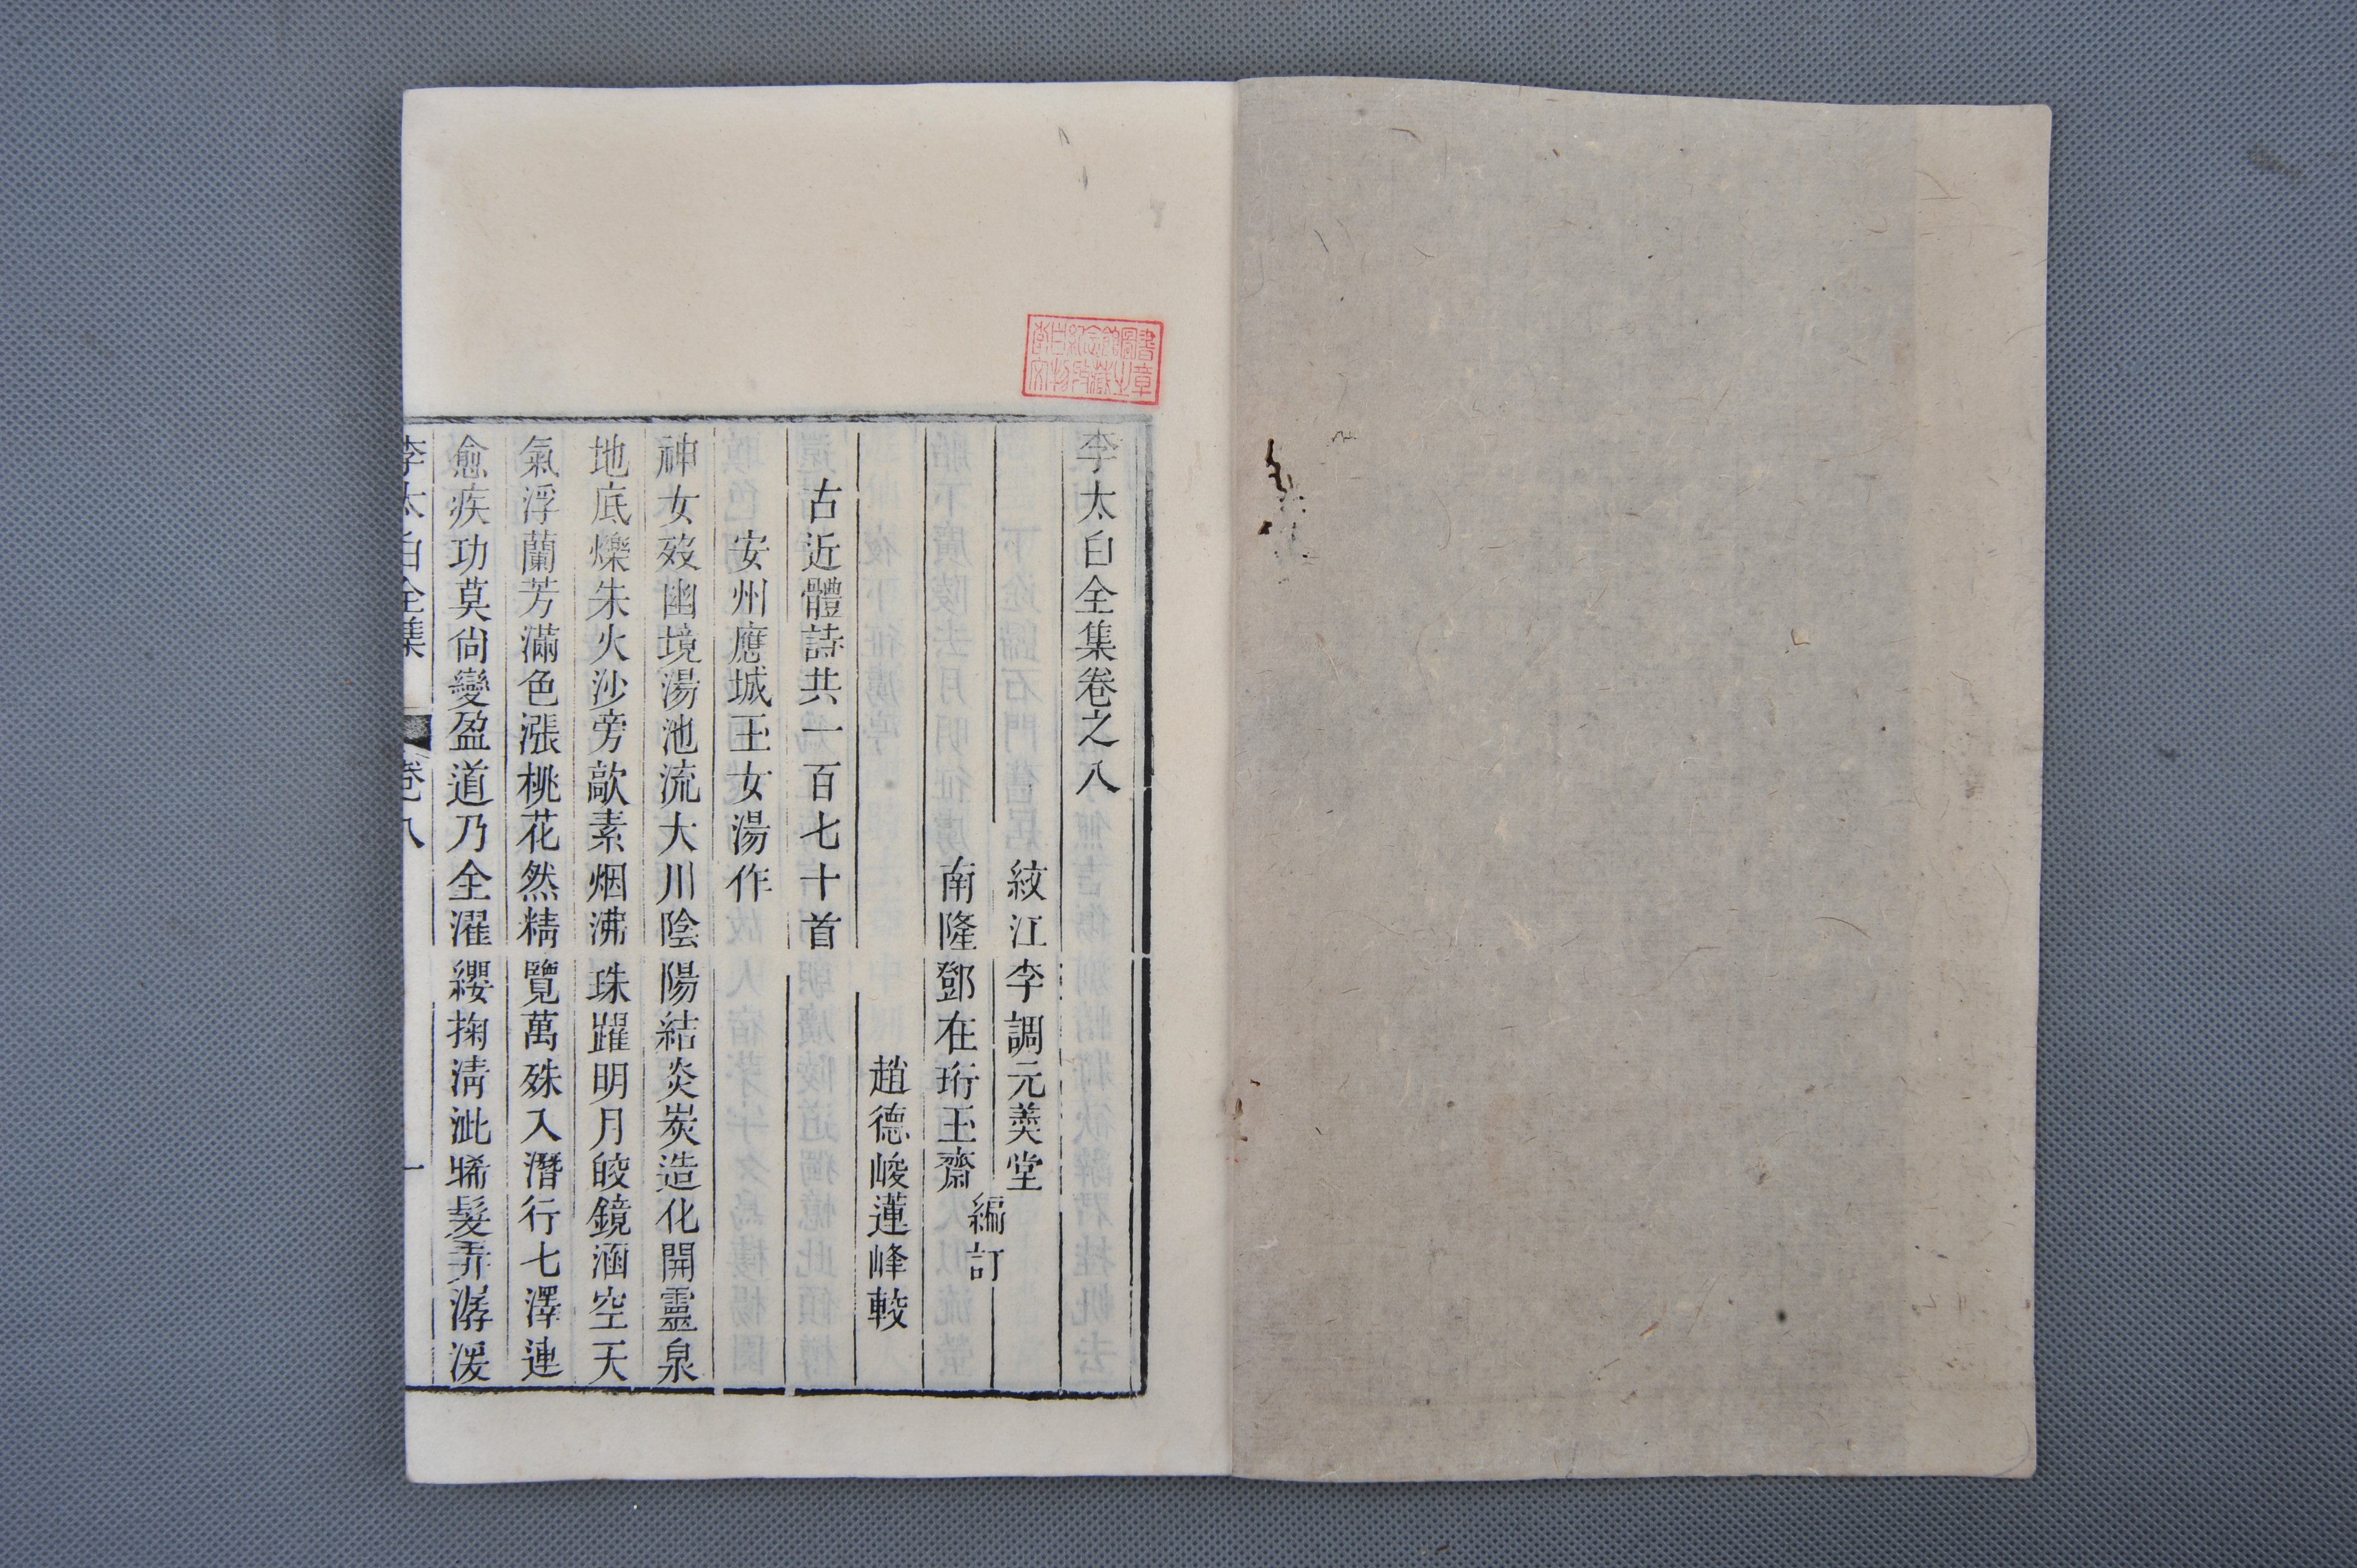 李太白全集卷之八
紋江李調元羹堂
南隆鄧在珩玉齋
編訂
趙德峻蓮峰較
古近體詩共一百七十首
安州應城玉女湯作
神女歿幽境湯池流大川陰陽結炎炭造化開靈泉
地底爍朱火沙旁歊素烟沸珠躍明月皎鏡涵空天
氣浮蘭芳滿色漲桃花然精覽萬殊入潛行七澤連
愈疾功莫尚變盈道乃全濯纓掬清泚晞髮弄潺湲
李太白全集 卷八 一